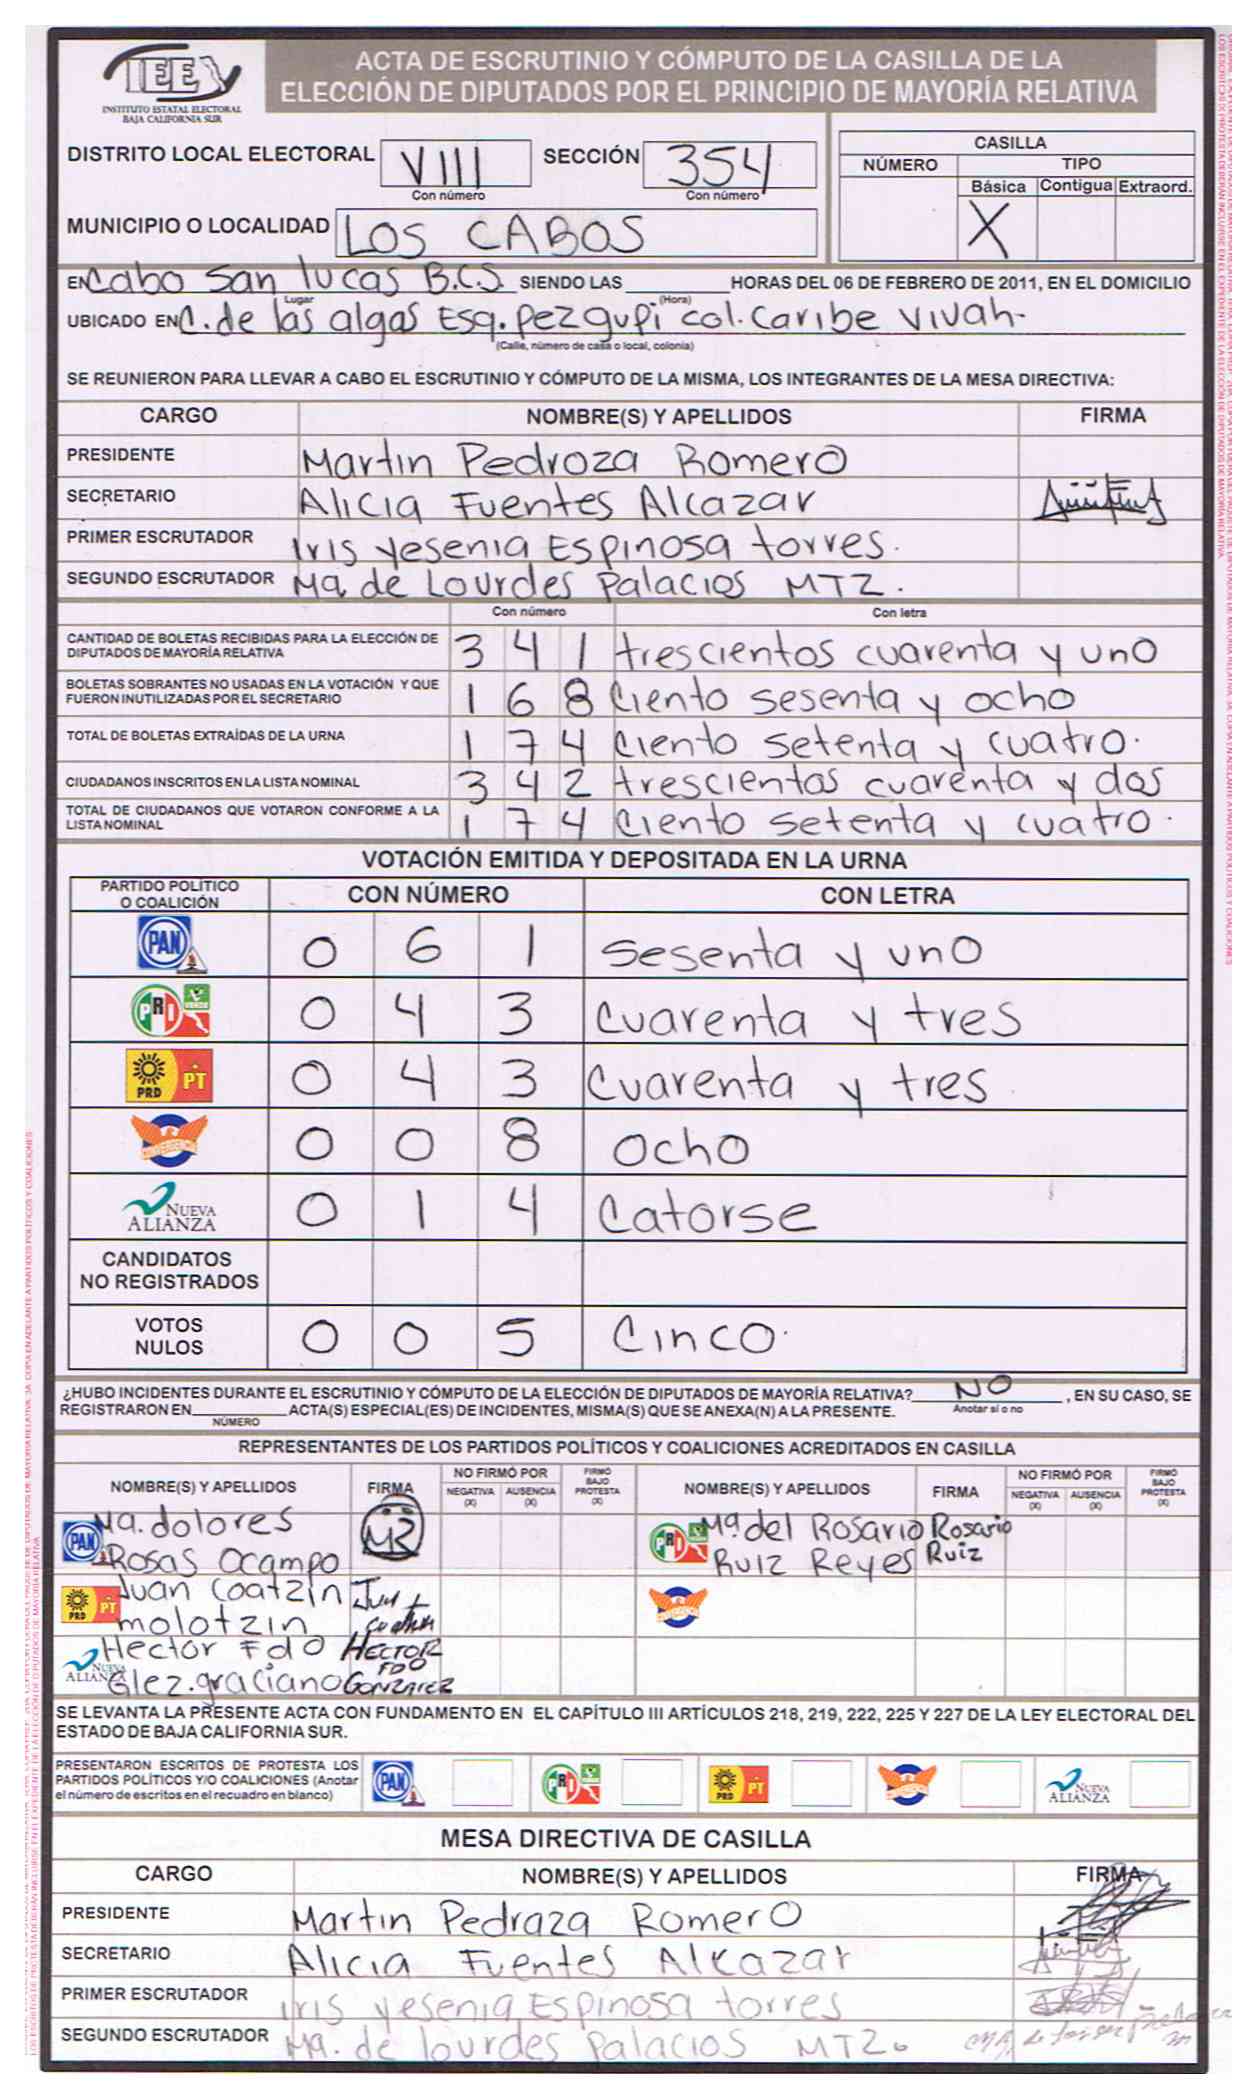 IEE
INSTITUTO ESTATAL ELECTORAL
BAJA CALIFORNIA SUR
ACTA DE ESCRUTINIO Y CÓMPUTO DE LA CASILLA DE LA
ELECCIÓN DE DIPUTADOS POR EL PRINCIPIO DE MAYORÍA RELATIVA
DISTRITO LOCAL ELECTORAL VIII SECCIÓN 354
Con número Con número
CASILLA
NÚMERO TIPO
Básica Contigua Extraord.
X
MUNICIPIO O LOCALIDAD LOS CABOS
EN Cabo San lucas B.C.S. SIENDO LAS HORAS DEL 06 DE FEBRERO DE 2011, EN EL DOMICILIO
Lugar (Hora)
UBICADO EN C. de las algas Esq. pez gupi col. Caribe Vivah-
(Calle, número de casa o local, colonia)
SE REUNIERON PARA LLEVAR A CABO EL ESCRUTINIO Y CÓMPUTO DE LA MISMA, LOS INTEGRANTES DE LA MESA DIRECTIVA:
CARGO NOMBRE(S) Y APELLIDOS FIRMA
PRESIDENTE Martin Pedroza Romero
SECRETARIO Alicia Fuentes Alcazar
PRIMER ESCRUTADOR Iris Yesenia Espinosa torres.
SEGUNDO ESCRUTADOR Ma. de Lourdes Palacios MTZ.
Con número Con letra
CANTIDAD DE BOLETAS RECIBIDAS PARA LA ELECCIÓN DE
DIPUTADOS DE MAYORÍA RELATIVA 3 4 1 trescientos cuarenta y uno
BOLETAS SOBRANTES NO USADAS EN LA VOTACIÓN Y QUE
FUERON INUTILIZADAS POR EL SECRETARIO 1 6 8 Ciento sesenta y ocho
TOTAL DE BOLETAS EXTRAÍDAS DE LA URNA 1 7 4 Ciento setenta y cuatro.
CIUDADANOS INSCRITOS EN LA LISTA NOMINAL 3 4 2 trescientos cuarenta y dos
TOTAL DE CIUDADANOS QUE VOTARON CONFORME A LA
LISTA NOMINAL 1 7 4 Ciento setenta y cuatro.
VOTACIÓN EMITIDA Y DEPOSITADA EN LA URNA
PARTIDO POLÍTICO
O COALICIÓN CON NÚMERO CON LETRA
PAN 0 6 1 sesenta y uno
PRI VERDE 0 4 3 Cuarenta y tres
PRD PT 0 4 3 Cuarenta y tres
CONVERGENCIA 0 0 8 ocho
NUEVA ALIANZA 0 1 4 Catorse
CANDIDATOS
NO REGISTRADOS
VOTOS
NULOS 0 0 5 Cinco.
¿HUBO INCIDENTES DURANTE EL ESCRUTINIO Y CÓMPUTO DE LA ELECCIÓN DE DIPUTADOS DE MAYORÍA RELATIVA? NO , EN SU CASO, SE
Anotar sí o no
REGISTRARON EN ACTA(S) ESPECIAL(ES) DE INCIDENTES, MISMA(S) QUE SE ANEXA(N) A LA PRESENTE.
NÚMERO
REPRESENTANTES DE LOS PARTIDOS POLÍTICOS Y COALICIONES ACREDITADOS EN CASILLA
NOMBRE(S) Y APELLIDOS FIRMA NO FIRMÓ POR NEGATIVA (X) AUSENCIA (X) FIRMÓ BAJO PROTESTA (X) NOMBRE(S) Y APELLIDOS FIRMA NO FIRMÓ POR NEGATIVA (X) AUSENCIA (X) FIRMÓ BAJO PROTESTA (X)
PAN Ma. dolores
Rosas Ocampo
PRI Ma del Rosario Rosario
Ruiz Reyes Ruiz
PRD PT Juan Coatzin
molotzin
CONVERGENCIA
NUEVA ALIANZA Hector Fdo HECTOR
FDO
Glez. graciano GONZALEZ
SE LEVANTA LA PRESENTE ACTA CON FUNDAMENTO EN EL CAPÍTULO III ARTÍCULOS 218, 219, 222, 225 Y 227 DE LA LEY ELECTORAL DEL
ESTADO DE BAJA CALIFORNIA SUR.
PRESENTARON ESCRITOS DE PROTESTA LOS
PARTIDOS POLÍTICOS Y/O COALICIONES (Anotar
el número de escritos en el recuadro en blanco)
PAN PRI PRD PT NUEVA ALIANZA
MESA DIRECTIVA DE CASILLA
CARGO NOMBRE(S) Y APELLIDOS FIRMA
PRESIDENTE Martin Pedraza Romero
SECRETARIO Alicia Fuentes Alkazar
PRIMER ESCRUTADOR Iris Yesenia Espinosa torres
SEGUNDO ESCRUTADOR Ma. de lourdes Palacios MTZ.